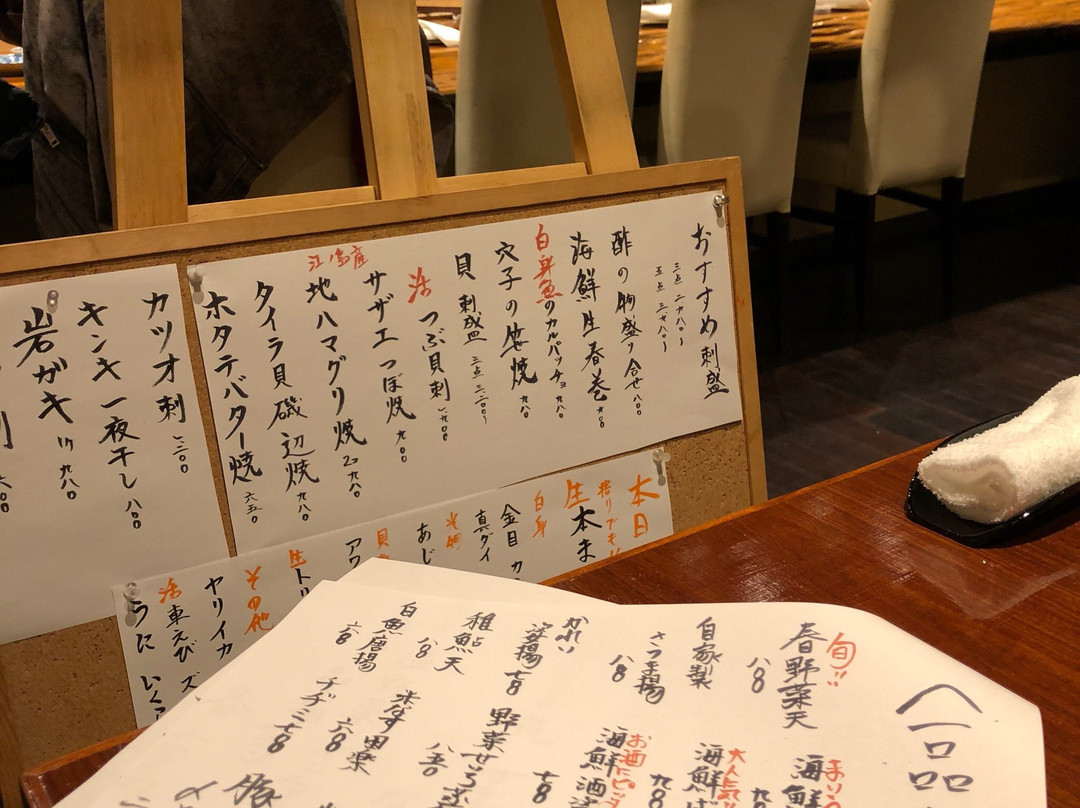 おすすめ刺盛
三点 二七八〇〜
五点 三七八〇〜
酢の物盛り合せ 八〇〇
海鮮生春巻 九〇〇
白身魚のカルパッチョ 九八〇
穴子の笠焼 九八〇
貝刺盛 三点 三二〇〇〜
活つぶ貝刺 一九〇〇
サザエつぼ焼 九〇〇
江ノ島産
地ハマグリ焼 2コ 九八〇
タイラ貝磯辺焼 九八〇
ホタテバター焼 六五〇
カツオ刺 一三〇〇
キンキ一夜干し 一八〇〇
岩ガキ 1ケ 九八〇
刺
本日
握りでも
生本ま
白身
金目
真ダイ
光物
あじ
貝
アワ
生ト
その他
ヤリイカ
活車えび
うに いくら
一品
旬!!
春野菜天 八〇
自家製
さつま揚 八〇
かれい
唐揚 七八〇
稚鮎天 八〇
白魚唐揚 六八〇
海鮮
大人気!!
海鮮ば 九八〇
お酒にピッ
海鮮酒 七八〇
野菜せいろ蒸 八五〇
米なす田楽 六八〇
チヂミ 七八〇
豚